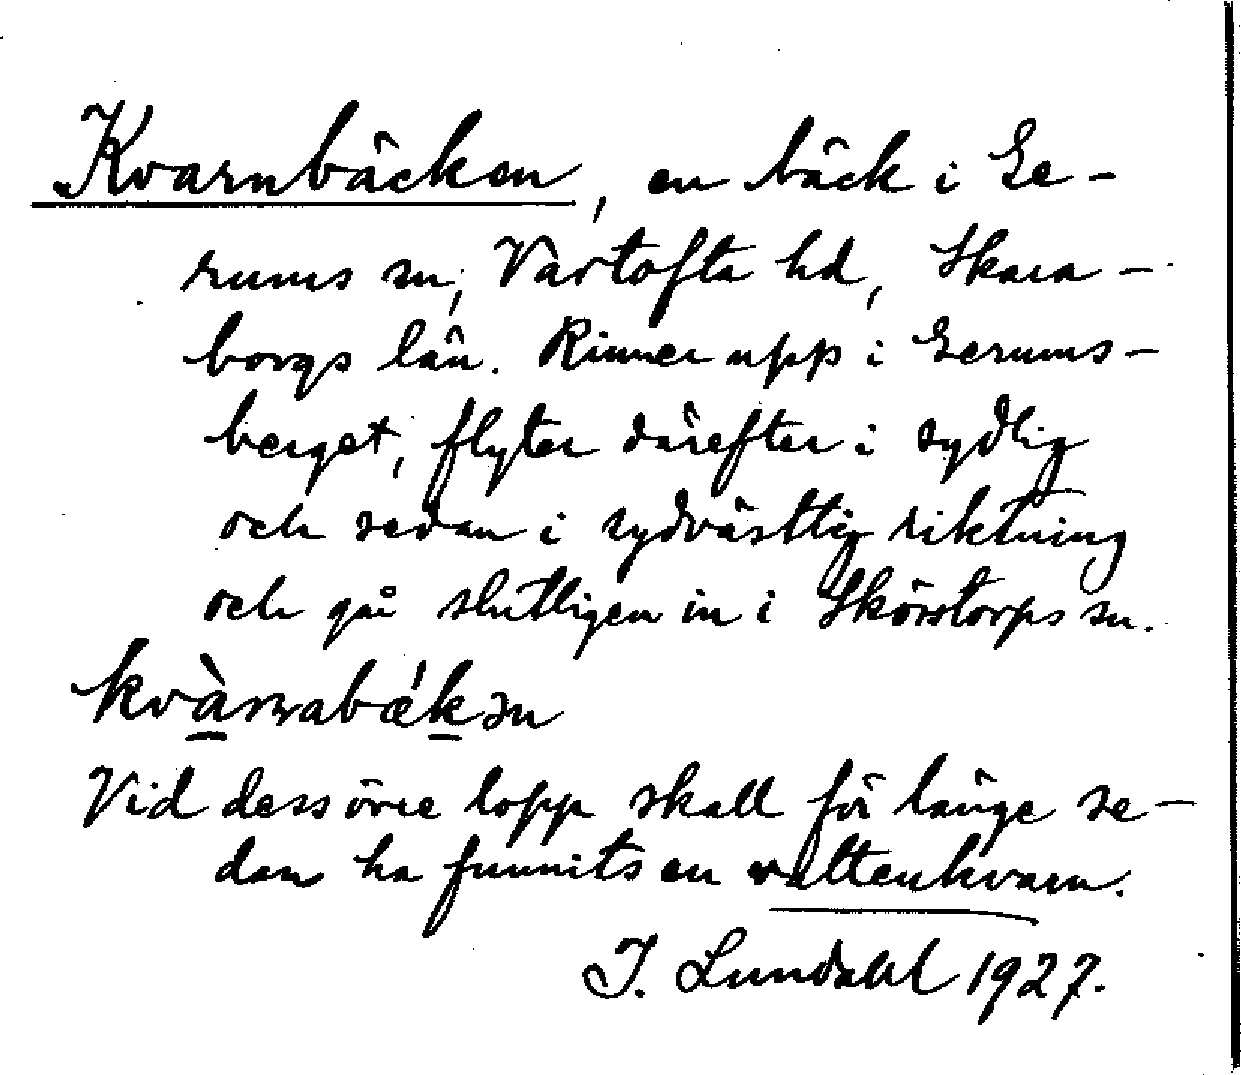 Kvarnbäcken, en bäck i Ge-
rums sn, Vartofta hd, Skara-
borgs län. Rinner upp i Gerums-
berget, flyter därefter i sydlig
och sedan i sydvästlig riktning
och går slutligen in i Skörstorps sn.
kvàrnabǽkən
Vid dess övre lopp skall för länge se-
dan ha funnits en vattenkvarn.
I. Lundahl 1927.